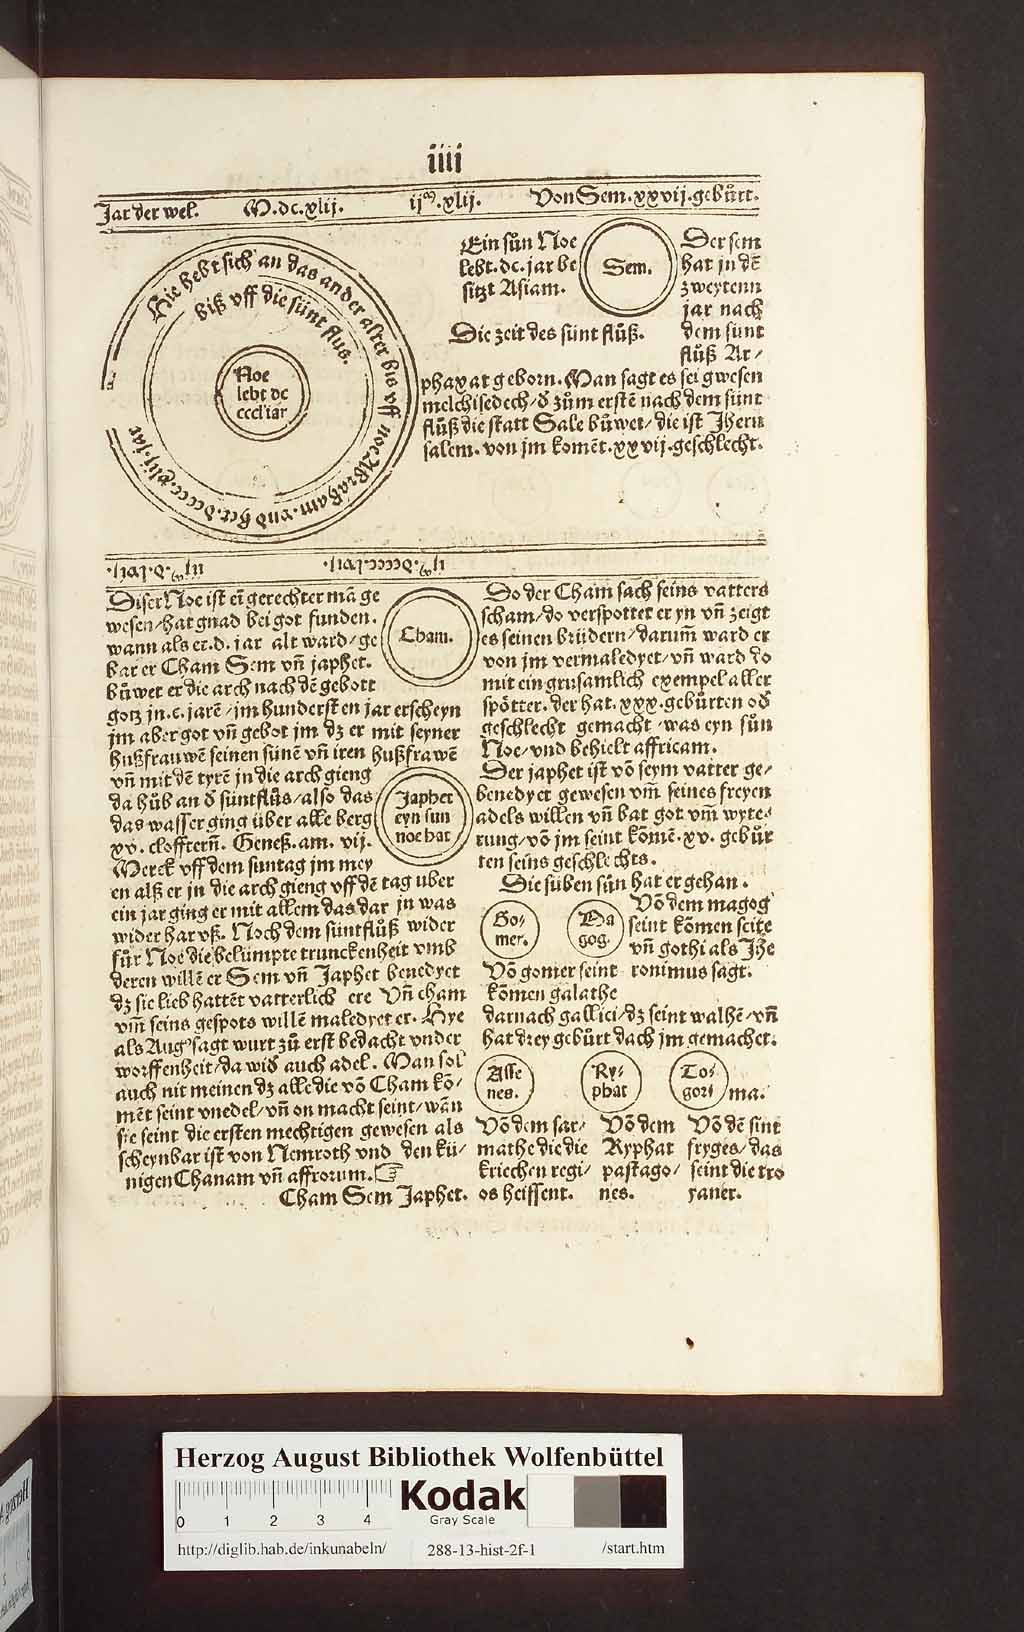 iiii
Jar der wel. M.dc.xlij. ijͫ.xlij. Von Sem.xxvij.gebůrt.
Hie hebt sich an das ander alter bis vff noe Abraham.vnd het.dcccc.xlij.jar
biß vff die sünt flus.
Noe
lebt dc
cccl iar
Ein sůn Noe
lebt.dc.jar be
sitzt Asiam.
Sem.
Der sem
hat jn dē
zweytenn
jar nach
dem sunt
flůß Ar/
Die zeit des sünt flůß.
phaxat geborn.Man sagt es sei gwesen
melchisedech/đ zům erstē nach dem sünt
flůß die statt Sale bůwet/die ist Jheru
salem.von jm komēt.xxvij.geschlecht.
Diser Noe ist eī gerechter mā ge
wesen/hat gnad bei got funden.
wann als er.d.jar alt ward/ge
bar er Cham Sem vn̄ japhet.
bůwet er die arch nach dē gebott
gotz jn.c.jarē/im hundersten jar erscheyn
jm aber got vn̄ gebot jm dz er mit seyner
hußfrauwē seinen sünē vn̄ iren hußfrawē
vn̄ mit dē tyrē jn die arch gieng
da hůb an đ süntflůs/also das
das wasser ging über alle berg
xv. clofftern̄. Geneß.am.vij.
Merck vff dem suntag jm mey
en alß er jn die arch gieng vff dē tag uber
ein jar ging er mit allem das dar jn was
wider har vß. Noch dem süntflůß wider
fůr Noe die belümpte trunckenheit vmb
deren willē er Sem vn̄ Japhet benedyet
dz sie lieb hattēt vatterlich ere Vn̄ cham
vm̄ seins gespots willē maledyet er. Hye
als Augꝰ sagt wurt zů erst bedacht vnder
worffenheit/da wid auch adel. Man sol
auch nit meinen dz alle die vō Cham kō/
mēt seint vnedel/vn̄ on macht seint/wān
sie seint die ersten mechtigen gewesen als
scheynbar ist von Nemroth vnd den kü/
nigen Chanam vn̄ affrorum.☞
Cham Sem Japhet.
Cham.
Japhet
eyn sun
noe hat
Do der Cham sach seins vatters
scham/do verspottet er yn vn̄ zeigt
es seinen brüdern/darum̄ ward er
von jm vermaledyet/vn̄ ward do
mit ein grusamlich exempel aller
spötter. der hat.xxx.gebůrten ođ
geschlecht gemacht/was eyn sůn
Noe/vnd behielt affricam.
Der japhet ist vō seym vatter ge/
benedyet gewesen vm̄ seines freyen
adels willen vn̄ bat got vm̄ wyte/
rung/vō jm seint kōmē.xv. gebůr
ten seins geschlechts.
Die süben sün hat er gehan.
Go/
mer.
Ma
gog.
Vō dem magog
seint kōmen scite
vn̄ gothi als Jhe
ronimus sagt.
Vō gomer seint
kōmen galathe
darnach gallici/dz seint walhē/vn̄
hat drey gebůrt dach jm gemachet.
Asse
nes.
Ry/
phat
To/
gor/ ma.
Vō dem sar/
mathe die die
kriechen regi/
os heissent.
Vō dem
Ryphat
paflago/
nes.
Vō dē sint
fryges/das
seint die tro
yaner.
Herzog August Bibliothek Wolfenbüttel
0 1 2 3 4
Kodak
Gray Scale
http://diglib.hab.de/inkunabeln/ 288-13-hist-2f-1 /start.htm